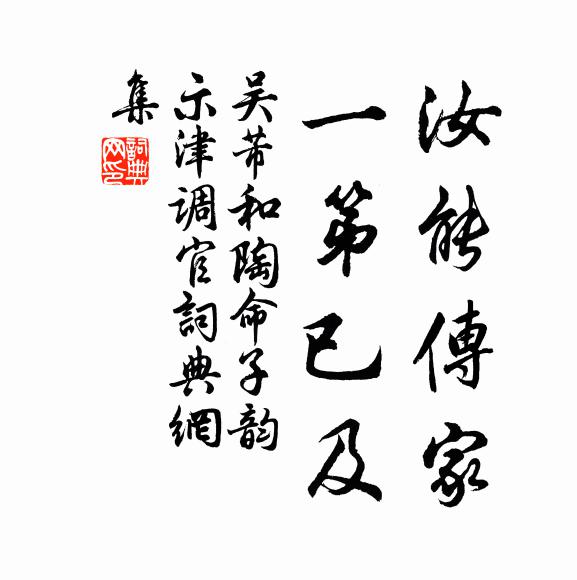 汝能傳家
一第已及
吴芾和陶命子韵
示津调官詞典網
集
詞典
网印